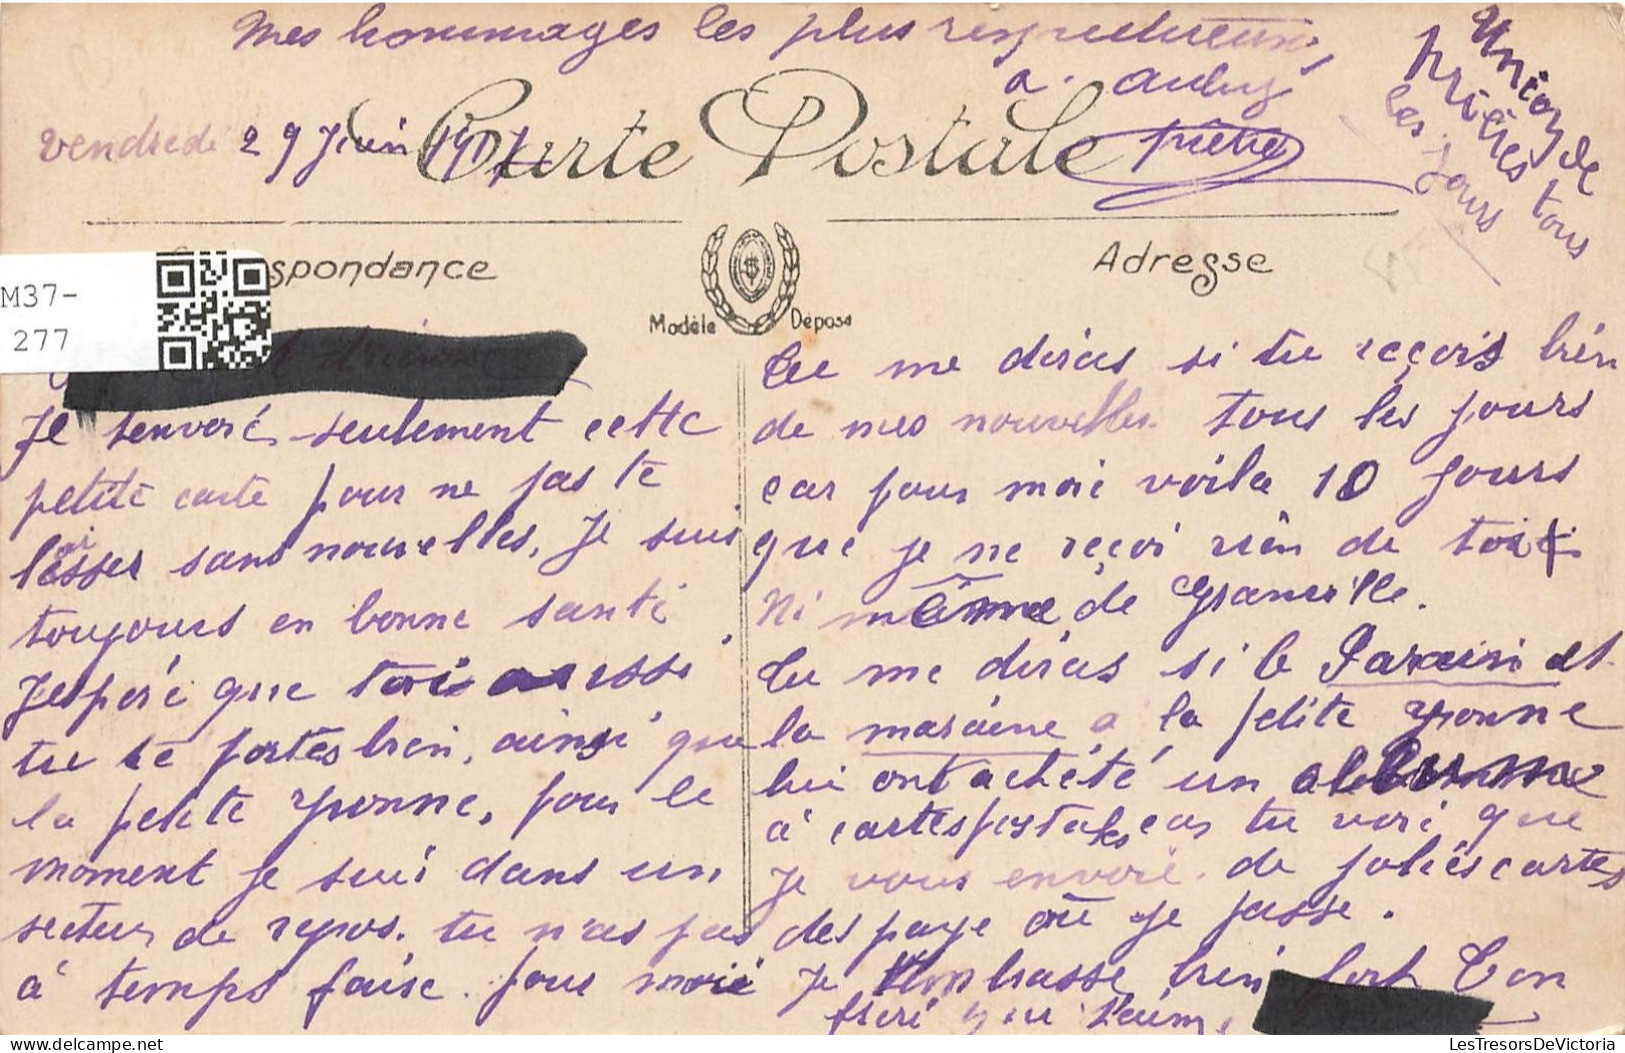 Mes hommages les plus respectueux
a. aubry
prêtre
Union de
prières tous
les Jours
vendredi 29 Juin 1917
Carte Postale
spondance
Adresse
Modèle Déposé
M37-
277
Je tenvoie seulement cette
petite carte pour ne pas te
laisser sans nouvelles, Je suis
toujours en bonne santé
Jespère que toi aussi
tu te portes bien, ainsi que
la petite Yvonne, pour le
moment je suis dans un
secteur de repos. tu n'as pas
à temps faire pour moi
Tu me diras si tu reçois bien
de mes nouvelles tous les jours
car pour moi voila 10 Jours
que je ne reçoi rien de toi
Ni même de Granville.
Tu me diras si le Parain et
la maraine a la petite Yvonne
lui ont achété un albumme
à cartes postales car tu voi que
Je vous envoie de jolies cartes
des pays où je passe.
Je t'embrasse bien fort Ton
frère qui t'aime
LesTresorsDeVictoria